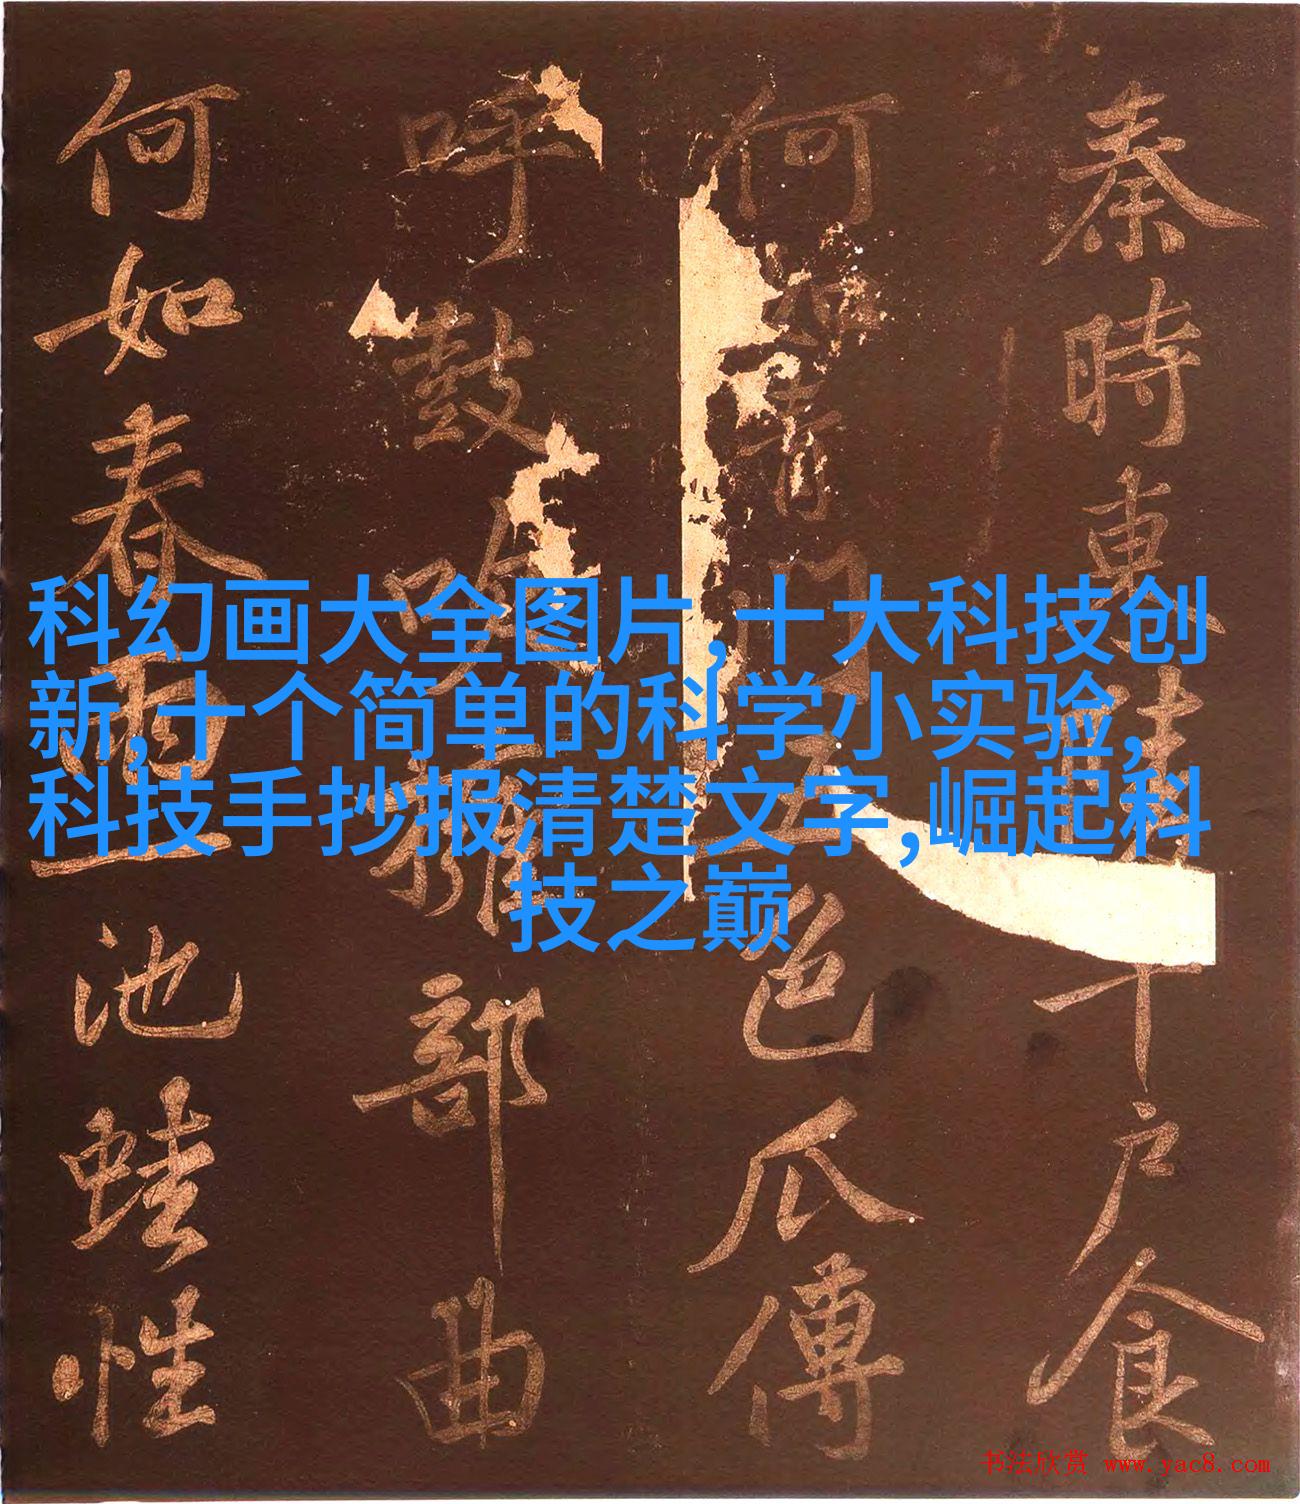 科幻画大全图片,十大科技创
新,十个简单的科学小实验,
科技手抄报清楚文字,崛起科
技之巅
秦時東陵千户食
何如青門五色瓜傅
呼鼓吹擁部曲
何如春雨池蛙性
书法欣赏 www.yac8.com